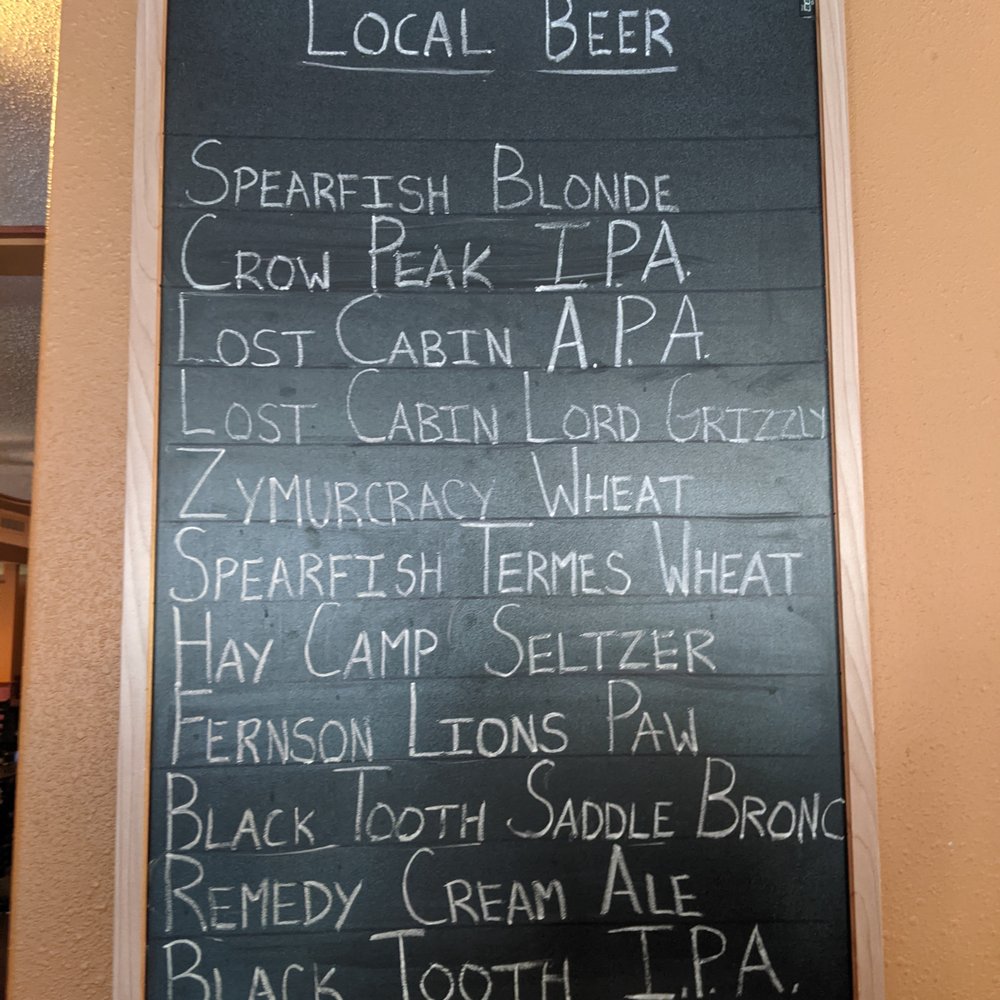 LOCAL BEER
SPEARFISH BLONDE
CROW PEAK I.P.A.
LOST CABIN A.P.A.
LOST CABIN LORD GRIZZLY
ZYMURCRACY WHEAT
SPEARFISH TERMES WHEAT
HAY CAMP SELTZER
FERNSON LIONS PAW
BLACK TOOTH SADDLE BRONC
REMEDY CREAM ALE
BLACK TOOTH I.P.A.